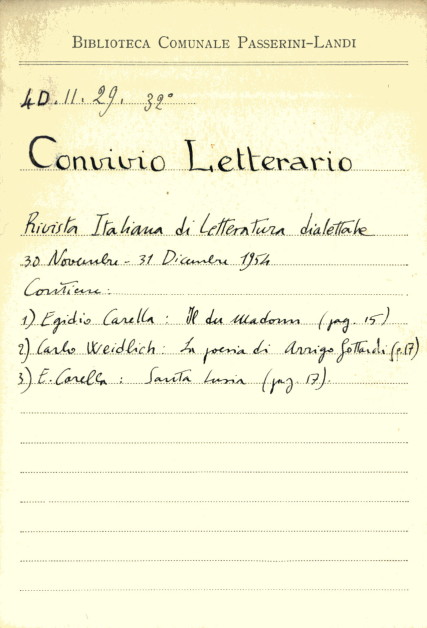 BIBLIOTECA COMUNALE PASSERINI-LANDI
4D.11.29. 32°
Convivio Letterario
Rivista Italiana di Letteratura dialettale
30 Novembre - 31 Dicembre 1954
Contiene:
1) Egidio Carella: Il du Madonn (pag. 15)
2) Carlo Weidlich: La poesia di Arrigo Gottardi (p. 17)
3) E. Carella: Santa Lusia (pag. 17).